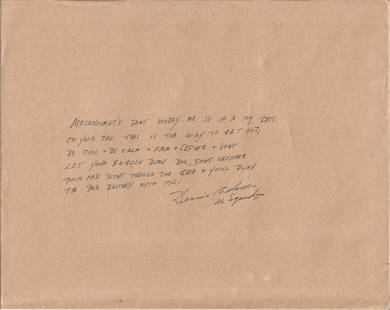 MESSERSCHMITTS DONT WORRY ME SO IF A 109 GETS
ON YOUR TAIL THIS IS THE WAY TO GET OUT,
BE COOL & BE CALM & & SEDATE & DONT
LET YOUR BRITISH BLOOD BOIL, DONT HESITATE
PUSH HER RIGHT THROUGH THE GATE & YOULL BLIND
THE POOR BASTARD WITH OIL.
Dennis
Squadron